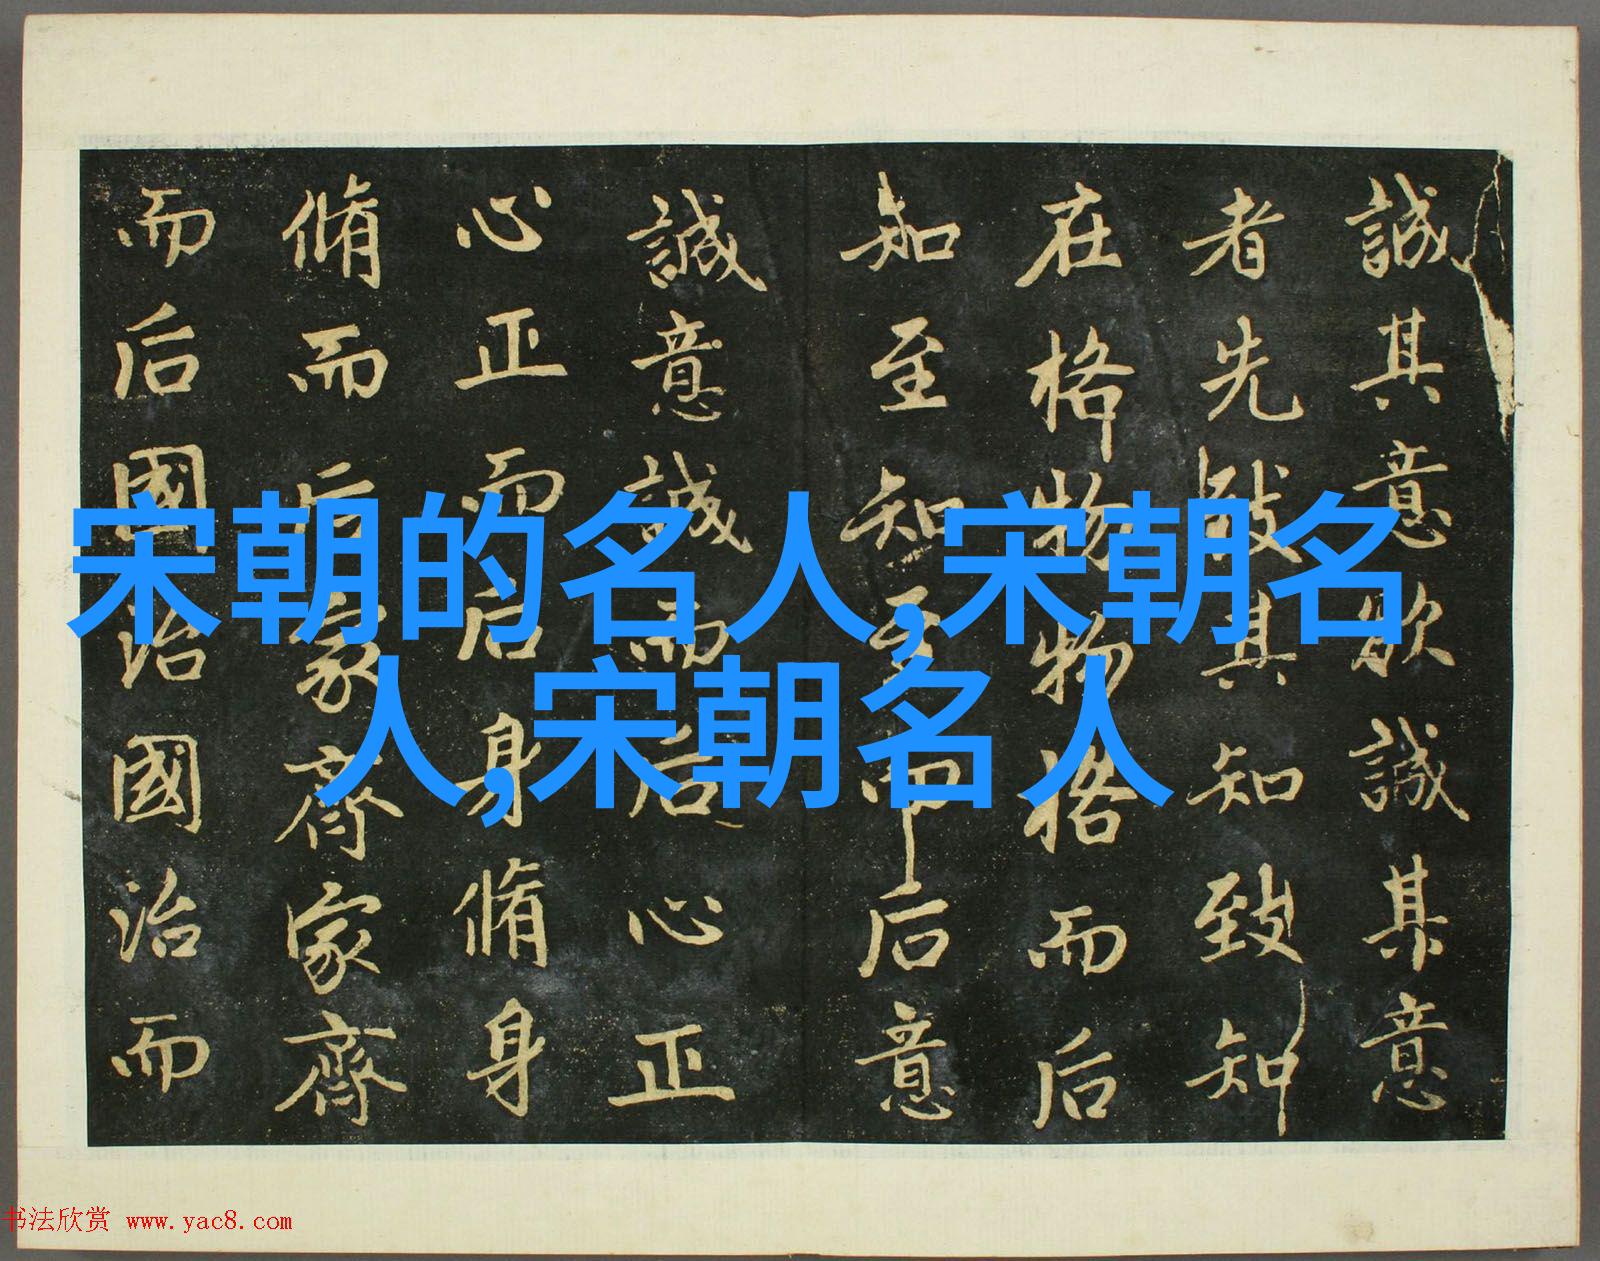 宋朝的名人,宋朝名
人,宋朝名人
誠其意欲誠其意
者先致其知致知
在格物物格而后
知至知至而后意
誠意誠而后心正
心正而后身脩身
脩而后家齊家齊
而后國治國治而
书法欣赏 www.yac8.com